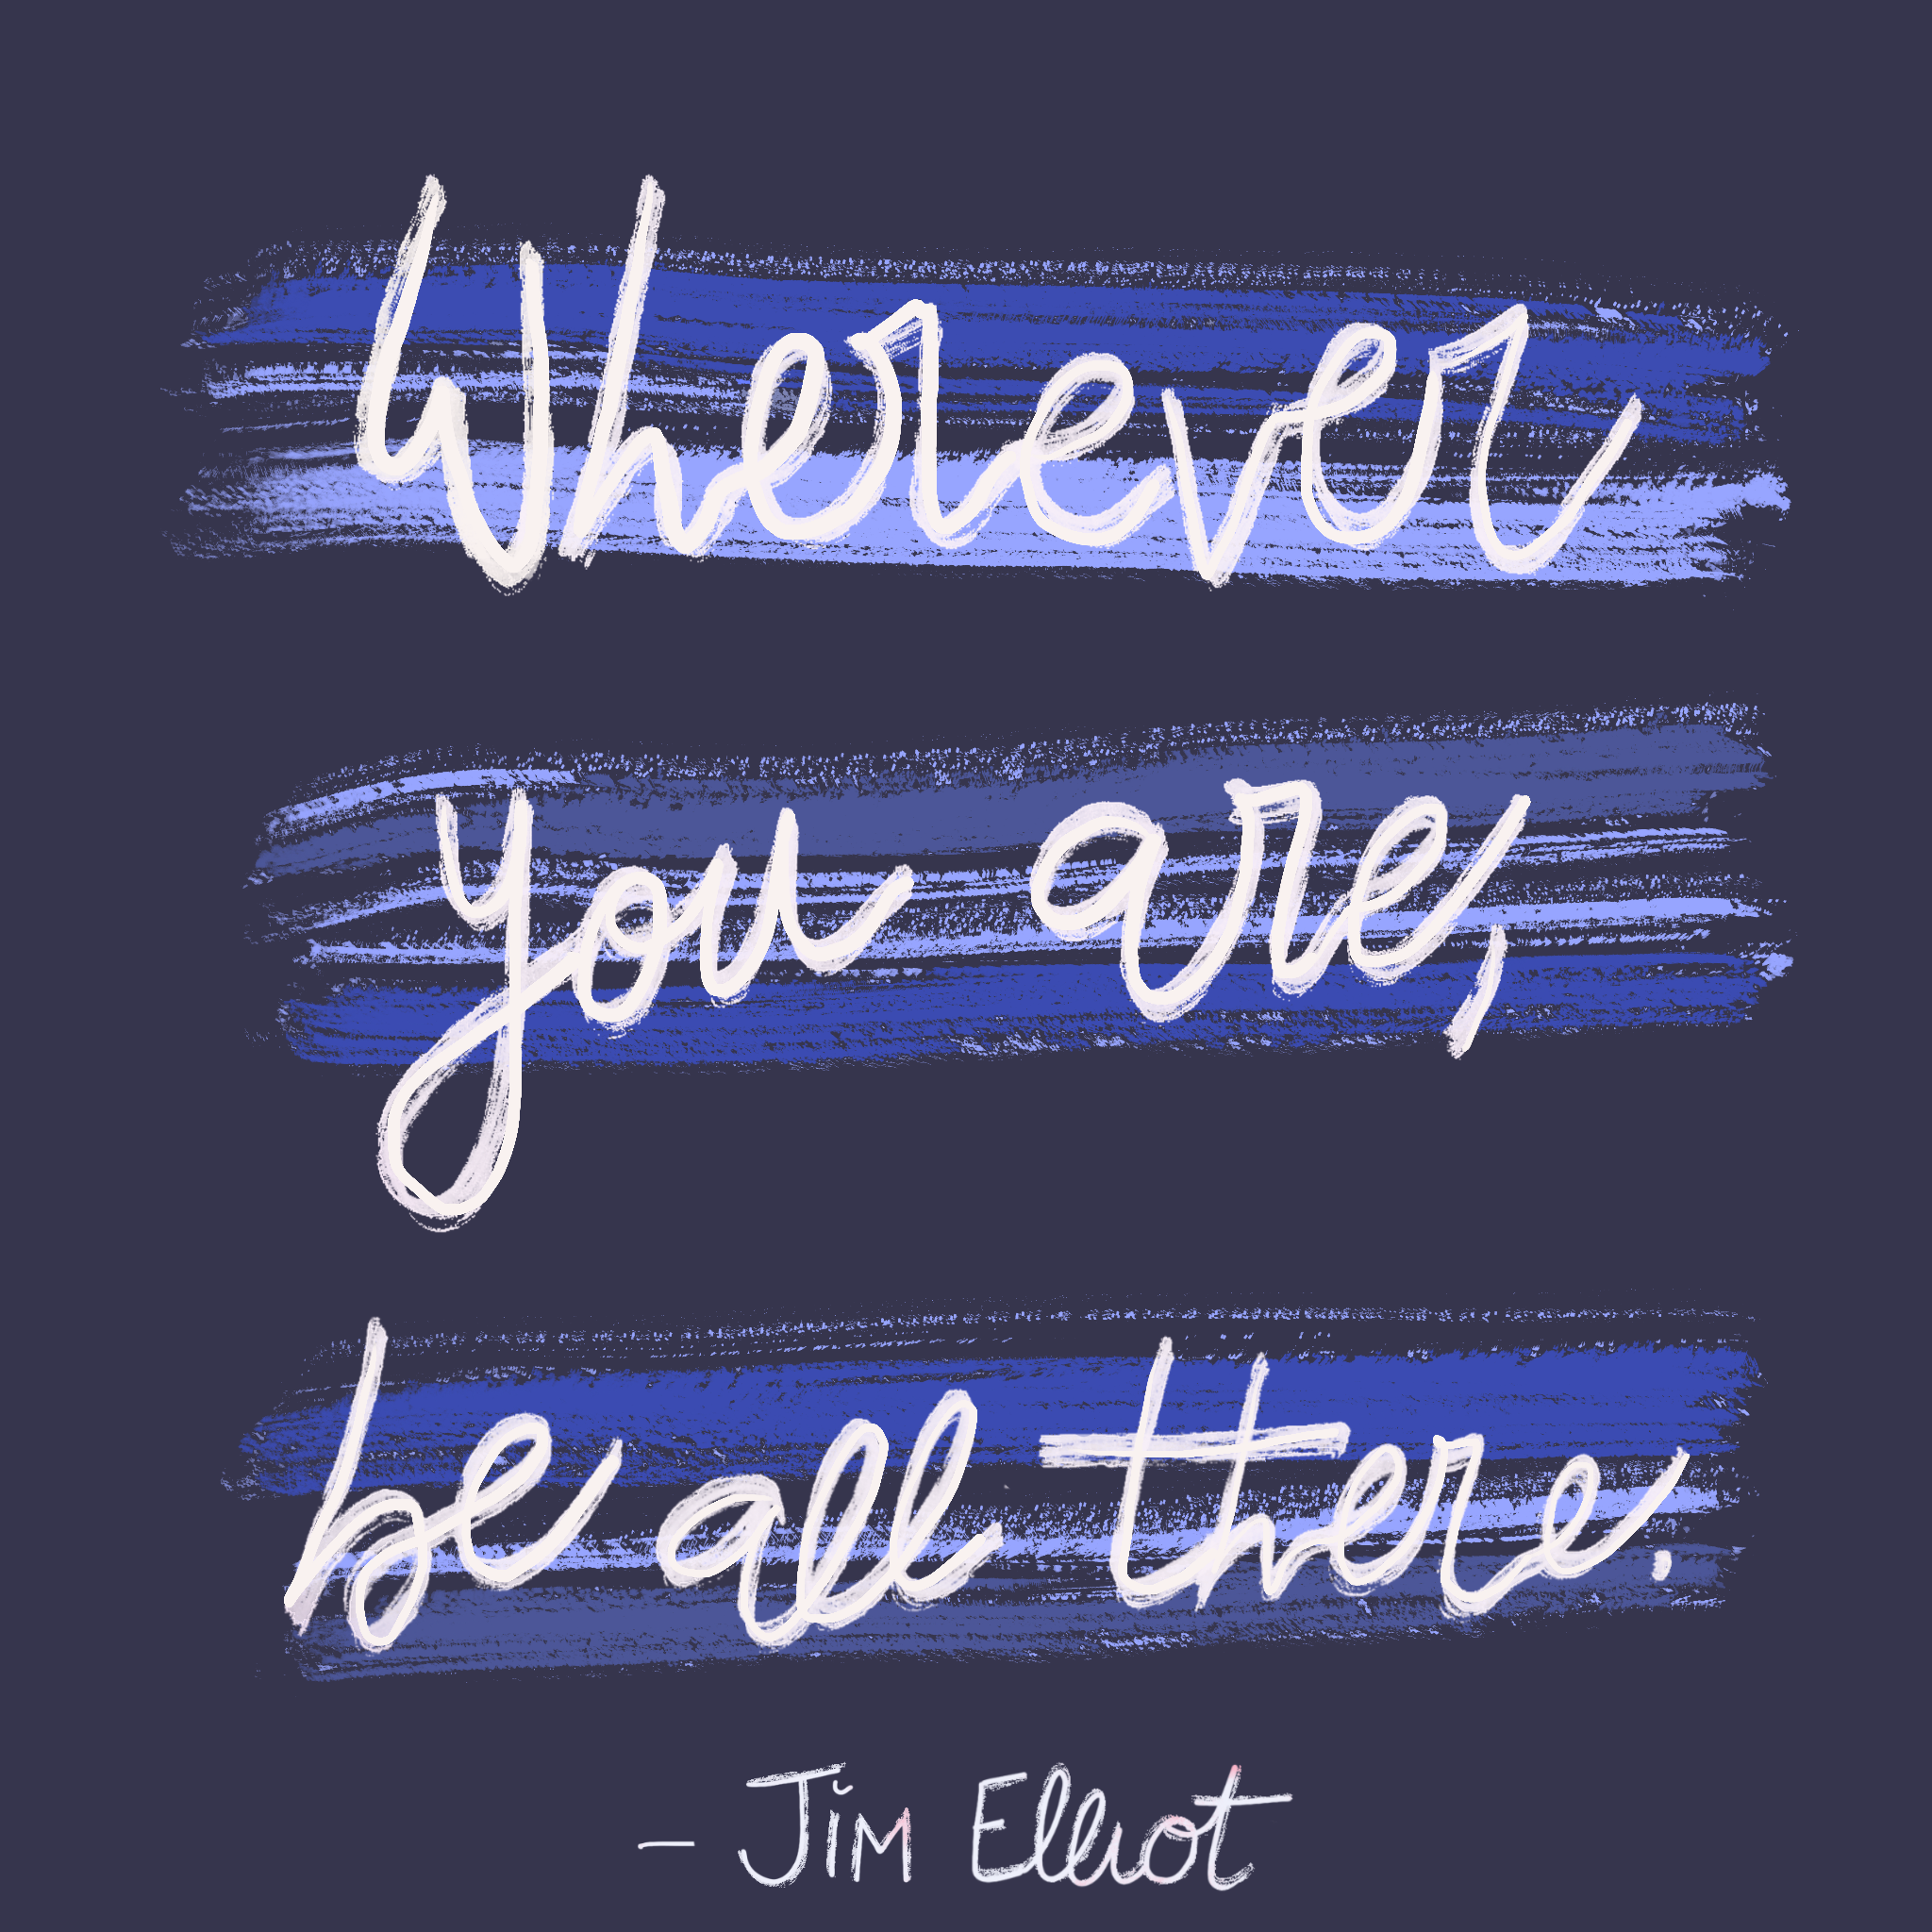 Wherever
you are,
be all there.
- Jim Elliot